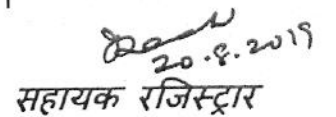 20.8.2019
सहायक रजिस्ट्रार